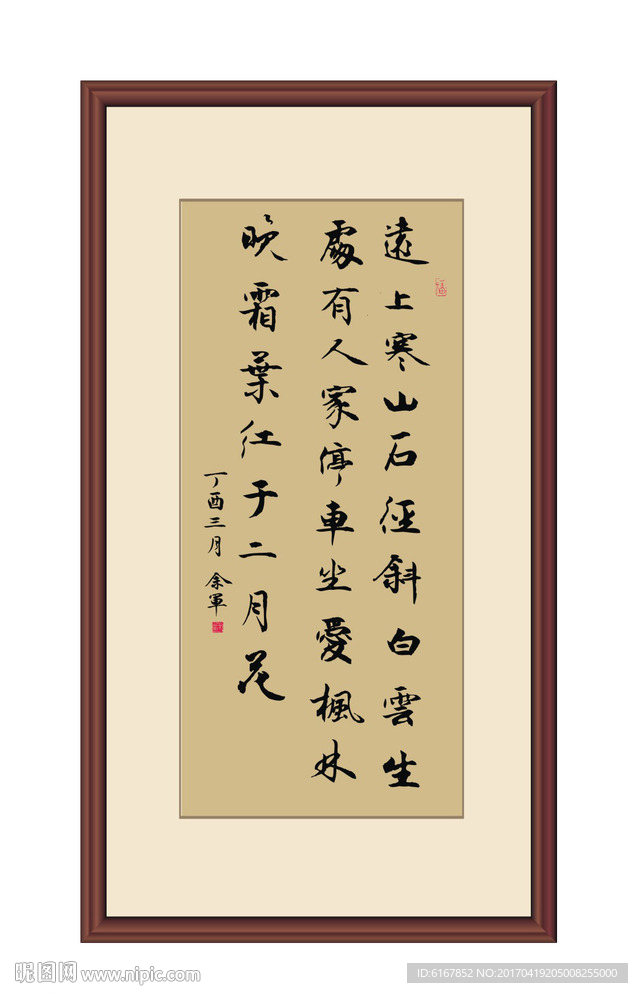 遠上寒山石徑斜白雲生
處有人家停車坐愛楓林
晚霜葉紅于二月花
丁酉三月 余軍
昵图网 www.nipic.com
ID:6167852 NO:20170419205008255000